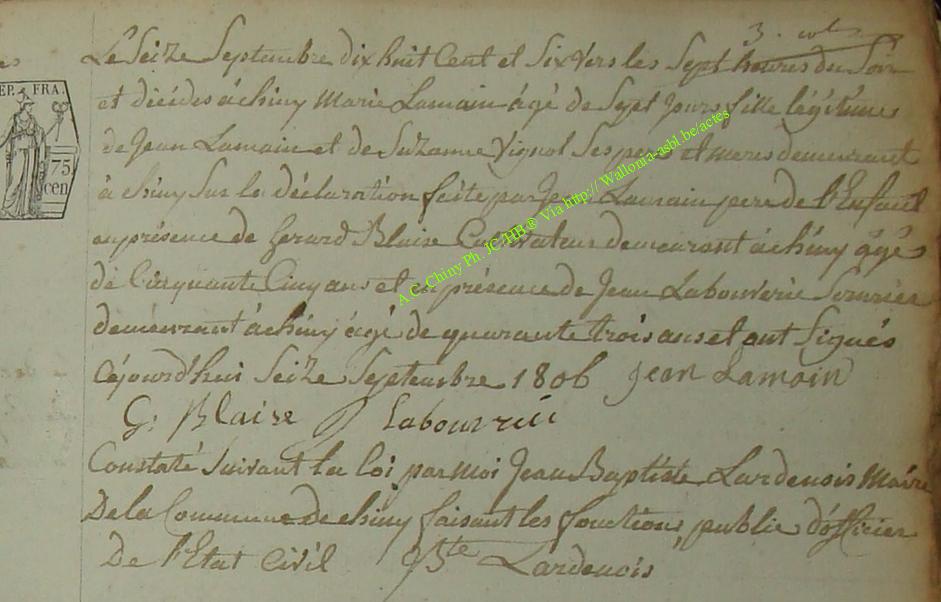 3.
Le Seize Septembre dix huit Cent et Six vers les Sept heures du Soir
REP. FRA.
et décédes à chiny Marie Lamain âgé de Sept Jours fille légitime
de Jean Lamain et de Suzanne Vignol Ses pere et meres demeurant
75
cen.
à chiny Sur la déclaration faite par Jean Lamain pere de l'Enfant
en présence de Gerard Blaise Cultivateur demeurant à chiny âgé
de Cinquante Cinq ans et en présence de Jean Labouverie
demeurant à chiny âgé de quarante trois ans et ont Signés
Cejourd'hui Seize Septembre 1806 Jean Lamain
G: Blaise Labouverie
Constaté Suivant la loi par moi Jean Baptiste Lardenois Maire
De la Commune de chiny faisant les fonctions public d'officier
De l'Etat Civil Bte Lardenois
A.C. Chiny Ph. JC-HB.® Via http:// Wallonia-asbl.be/actes